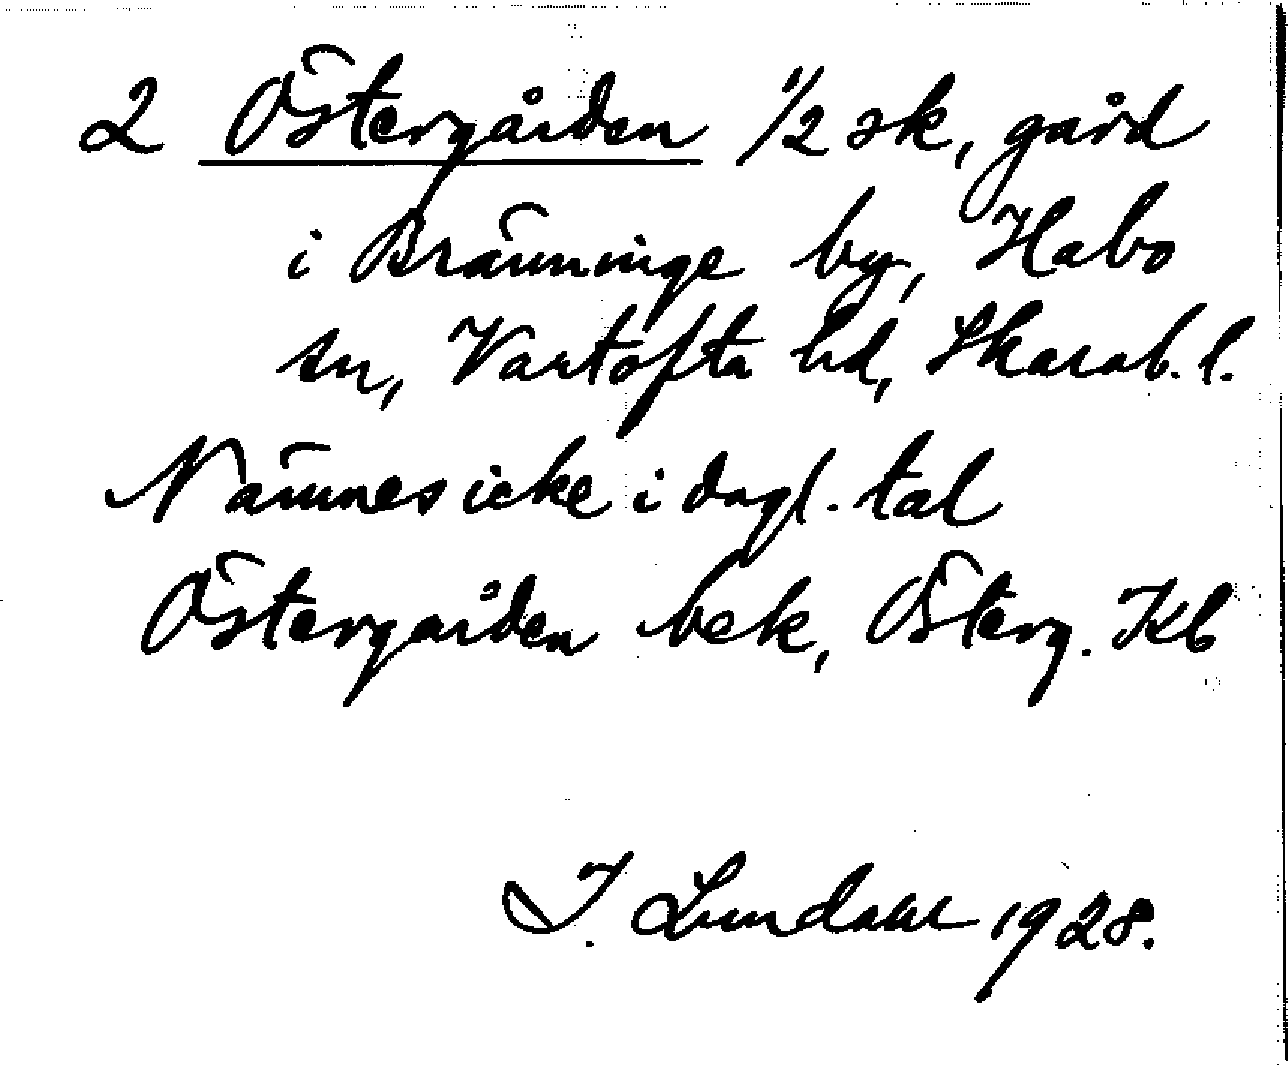 2 Östergården 1/2 sk, gård
i Bränninge by, Habo
sn, Vartofta hd, Skarab. l.
Nämnes icke i dagl. tal
Östergården bek, Österg. Kb
I. Lundahl 1928.